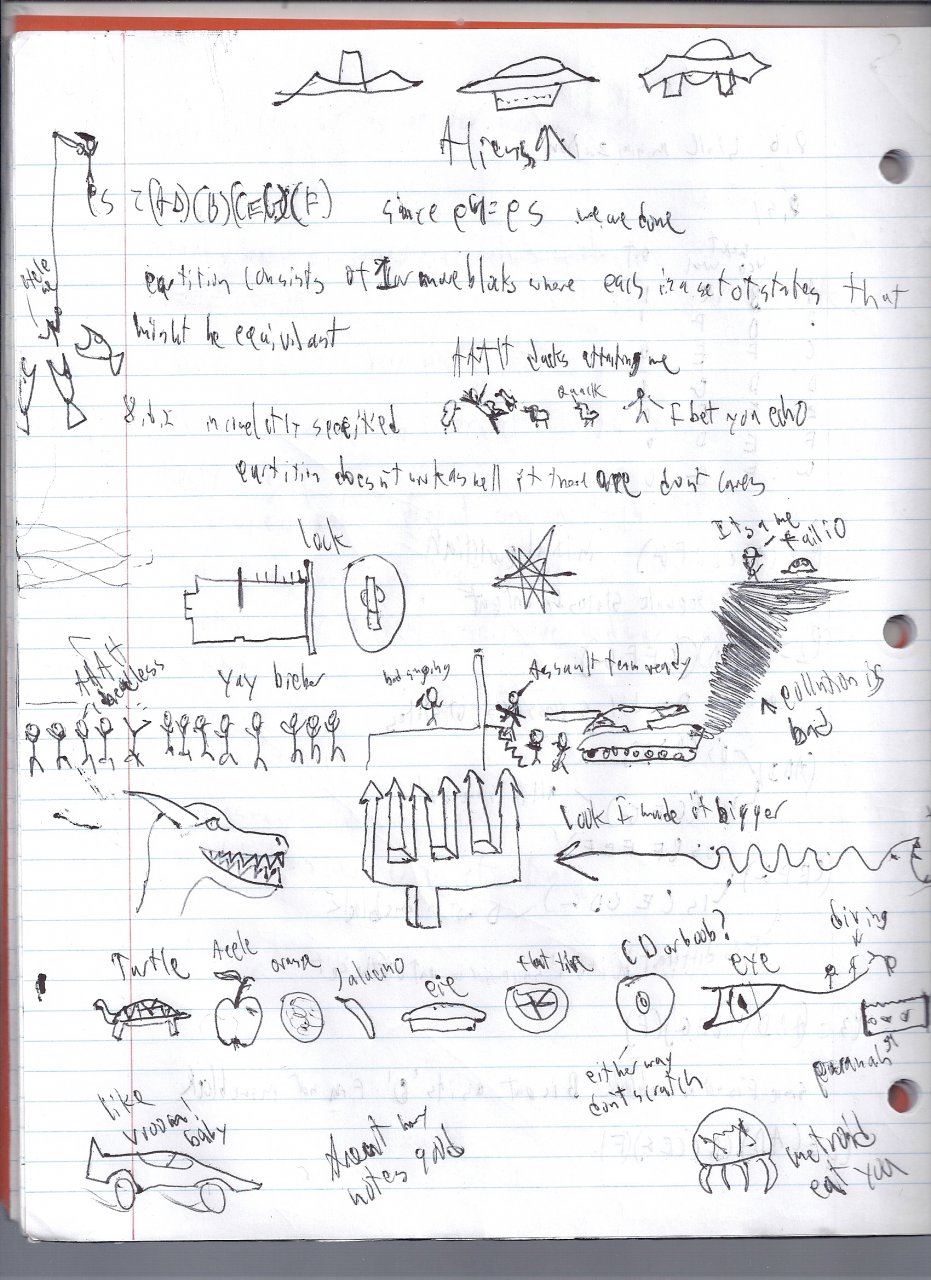 Aliens
P5 = (AD)(B)(CEG)(F) since P4 = P5 we are done
partition consists of 1 or more blocks where each is a set of states that
might be equivilant
AAAH ducks attacking me
Quack
I bet you echo
8.6.2 incompletly specified
partition doesn't work as well if there are dont cares
Lock
Its a me
fallio
AAAH
Yay bieber
bad singing
Assault team ready
pollution is
bad
Look I made it bigger
diving
Turtle
Apple
orange
Jalapino
pie
flat tire
CD or boob?
eye
either way
dont scratch
piranah
like
vroom!
baby
Arent my
notes good
metroid
eat you